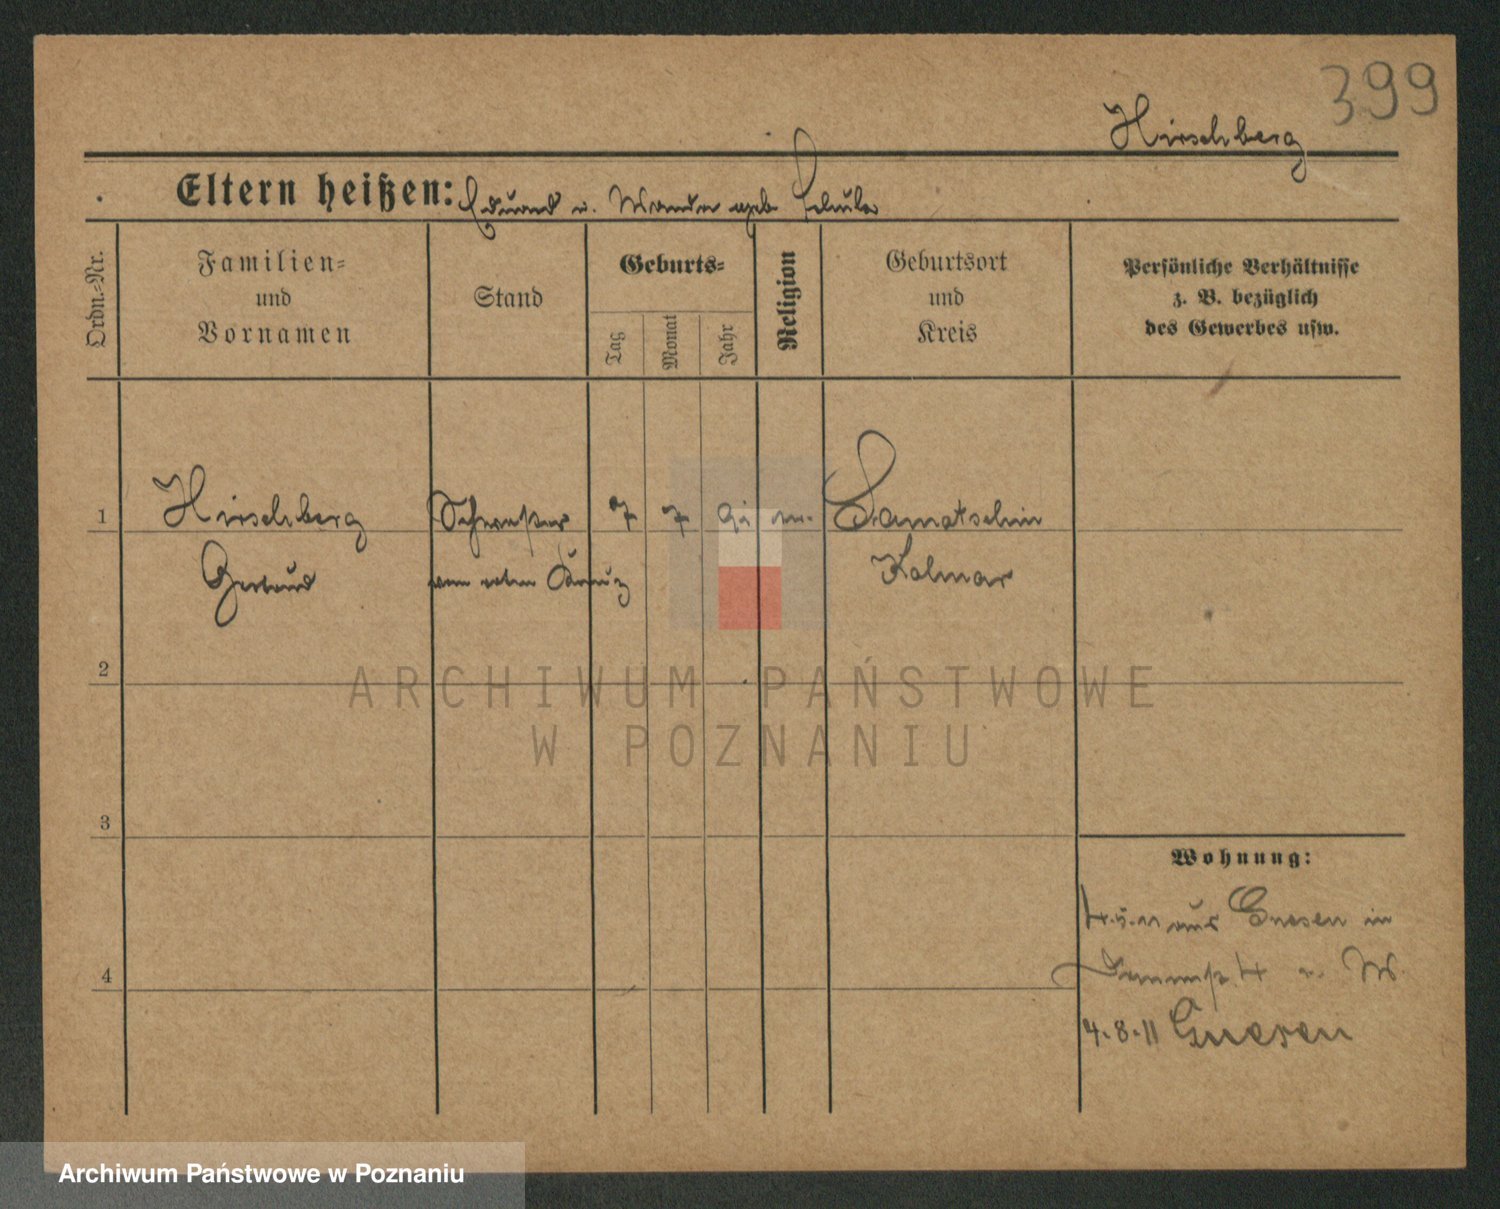 399
Hirschberg
Eltern heißen: Eduard u. Wanda geb. Schulz
Ordn.-Nr.
Familien-
und
Vornamen
Stand
Geburts-
Tag
Monat
Jahr
Religion
Geburtsort
und
Kreis
Persönliche Verhältnisse
z. B. bezüglich
des Gewerbes usw.
1 Hirschberg Schwester 7 7 Samotschin
Gertrud vom roten Kreuz Kolmar
2
3
4
Wohnung:
aus Gnesen in
4.8.11 Gnesen
ARCHIWUM PAŃSTWOWE
W POZNANIU
Archiwum Państwowe w Poznaniu